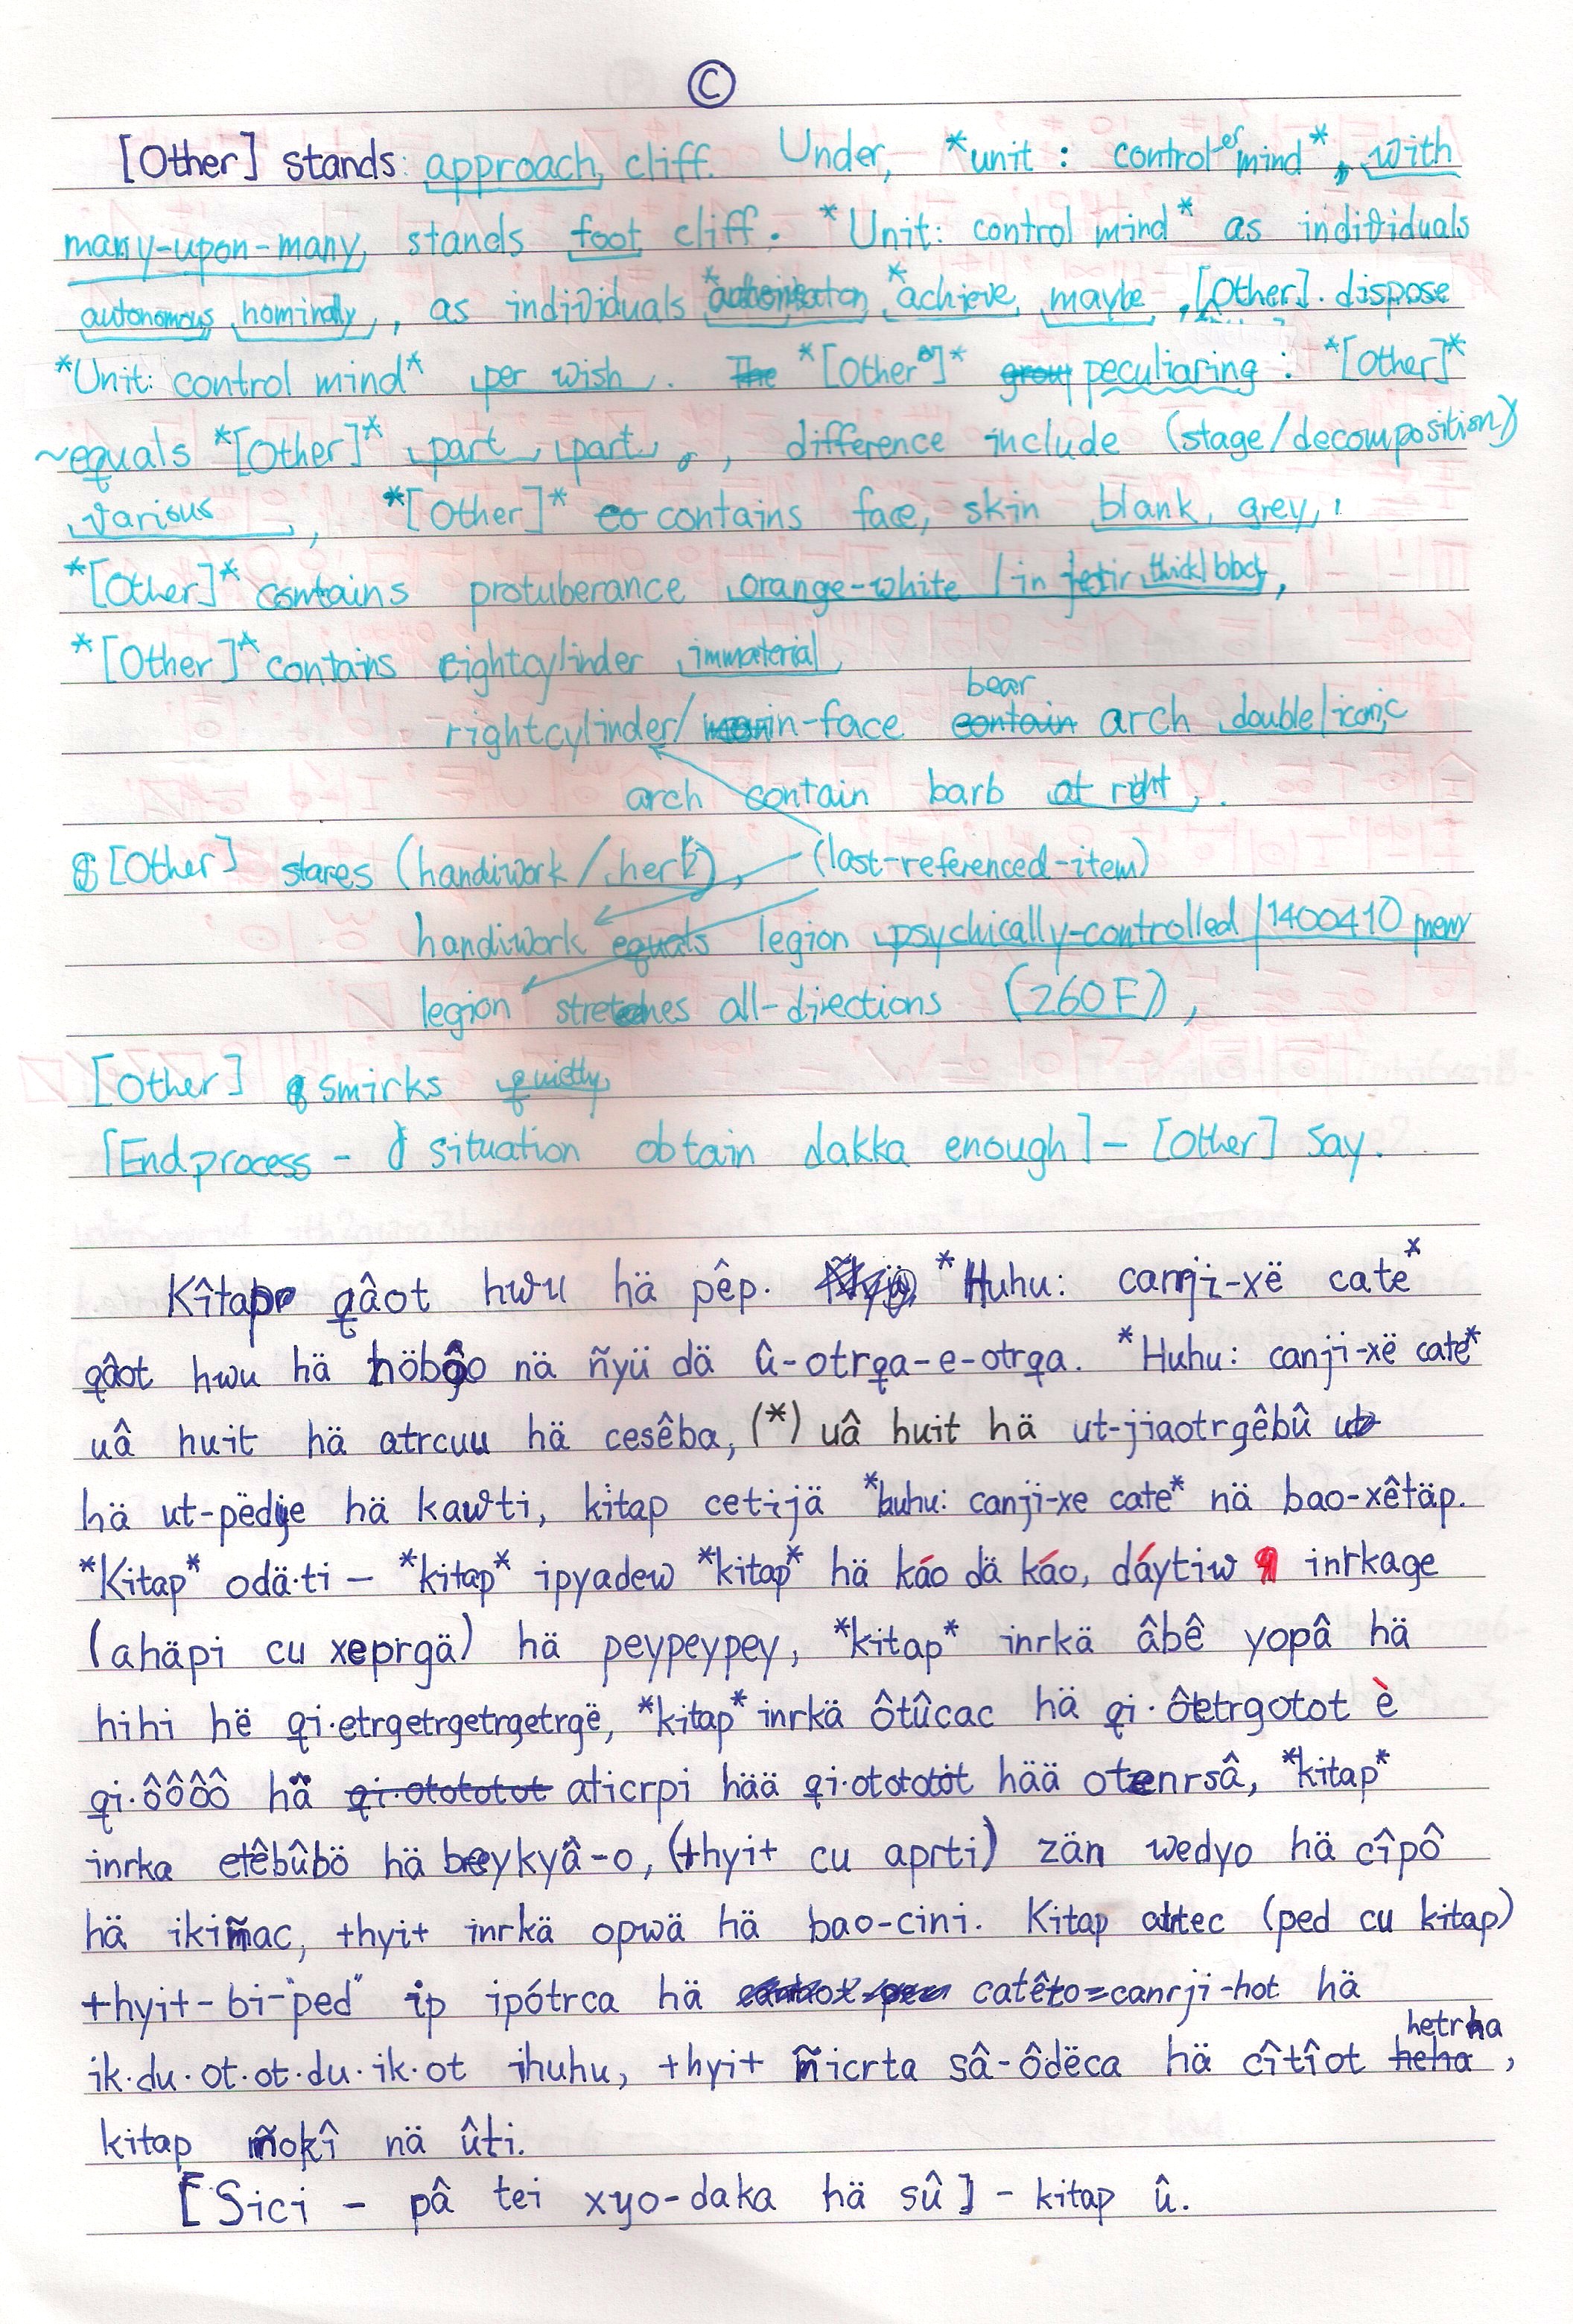 ©
[Other] stands: approach, cliff. Under, *unit: controler mind*, with
many-upon-many, stands foot cliff. *Unit: control mind* as individuals
autonomous nominally, as individuals *achieve, maybe, [Other]. dispose
*Unit: control mind* per wish. The *[Other]* group peculiaring: *[Other]*
~equals *[Other]* part part, difference include (stage/decomposition)
various, *[Other]* co contains face, skin blank, grey,
*[Other]* contains protuberance orange-white / in thick/black,
*[Other]* contains rightcylinder immaterial
bear
rightcylinder/ in-face contain arch double/iconic
arch contain barb at right,.
[Other] stares (handiwork/her), (last-referenced-item)
handiwork equals legion psychically-controlled/1400410 men
legion stretches all-directions (260F),
[Other] smirks quietly
[Endprocess - situation obtain dakka enough] - [Other] say.
Kîtap qâot hwu hä pêp. *Huhu: canji-xë cate*
qâot hwu hä höbôo nä ñyü dä û-otrqa-e-otrqa. *Huhu: canji-xë cate*
uâ huit hä atrcuu hä cesêba, (*) uâ huit hä ut-jiaotrgêbû
hä ut-pëdje hä kawti, kitap cetijä *huhu: canji-xe cate* nä bao-xêtäp.
*Kitap* odä·ti – *kitap* ipyadew *kitap* hä káo dä káo, dáytiw inrkage
(ahäpi cu xeprgä) hä peypeypey, *kitap* inrkä âbê yopâ hä
hihi hë qi·etrgetrgetrgetrgë, *kitap* inrkä ôtûcac hä qi·ôtetrgotot è
qi·ôôôô hä qi·otototot aticrpi hää qi·otototot hää otenrsâ, *kitap*
inrka etêbûbö hä beykyâ-o, (+hyi+ cu aprti) zän wedyo hä cîpô
hä ikiñac, +hyi+ inrkä opwä hä bao-cini. Kitap attec (ped cu kitap)
+hyi+-bi-"ped" ip ipótrca hä catêto=canrji-hot hä
hetrha
ik·du·ot·ot·du·ik·ot ihuhu, +hyi+ ñicrta sâ-ôdëca hä cîtîot heha,
kitap ñokî nä ûti.
[Sici - pâ tei xyo-daka hä sû] - kitap û.